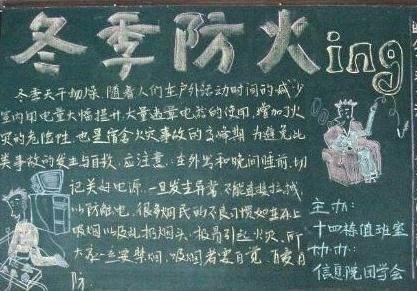 冬季防火ing
冬季天干物燥,随着人们在户外活动时间的减少
室内用电量大幅提升,大量违章电器的使用,增加了火
灾的危险性,也是宿舍火灾事故的高峰期.为避免此
类事故的发生与自救,应注意:在外出和晚间睡前,切
记关好电源,一旦发生异常不能直接拉扯
以防触电,很多烟民的不良习惯如在床上
吸烟以及乱扔烟头,极易引起火灾,所
大家一定要禁烟,吸烟者要自觉
防
主办:
十四栋值班室
协办:
信息院团学会